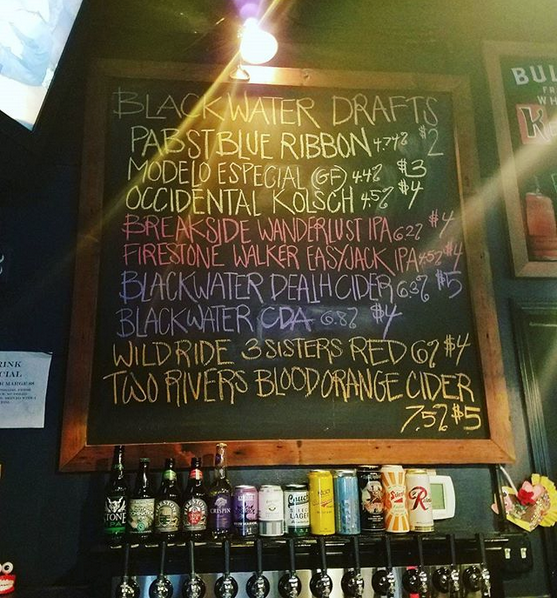 BLACKWATER DRAFTS
PABST BLUE RIBBON 4.74% $2
MODELO ESPECIAL (GF) 4.4% $3
OCCIDENTAL KOLSCH 4.5% $4
BREAKSIDE WANDERLUST IPA 6.2% $4
FIRESTONE WALKER EASYJACK IPA 4.5% $4
BLACKWATER DEATH CIDER 6.3% $5
BLACKWATER CDA 6.8% $4
WILD RIDE 3 SISTERS RED 6% $4
TWO RIVERS BLOOD ORANGE CIDER
7.5% $5
BUI
FR
K
RINK
CIAL
CRISPIN
LAGER
R